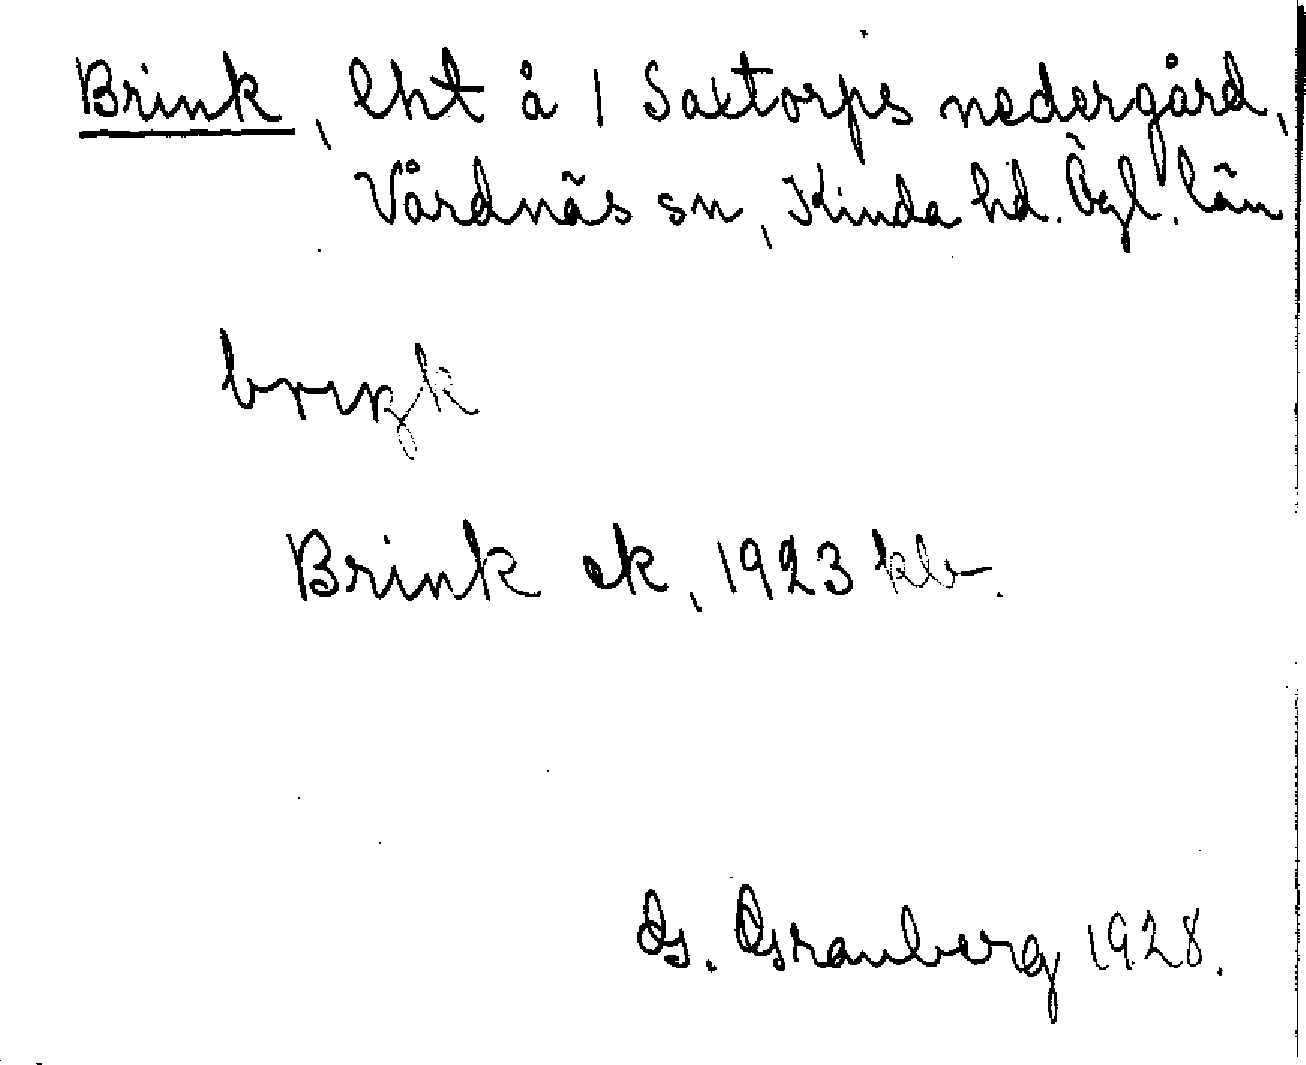 Brink, lht å 1 Saxtorps nedergård,
Vårdnäs sn, Kinda hd. Ögl. län
brıŋk
Brink ek, 1923 klb.
G. Granberg 1928.